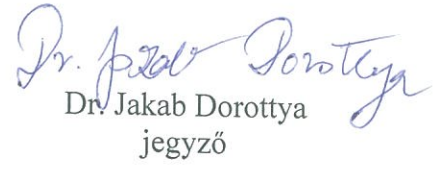 Dr. Jakab Dorottya
Dr. Jakab Dorottya
jegyző